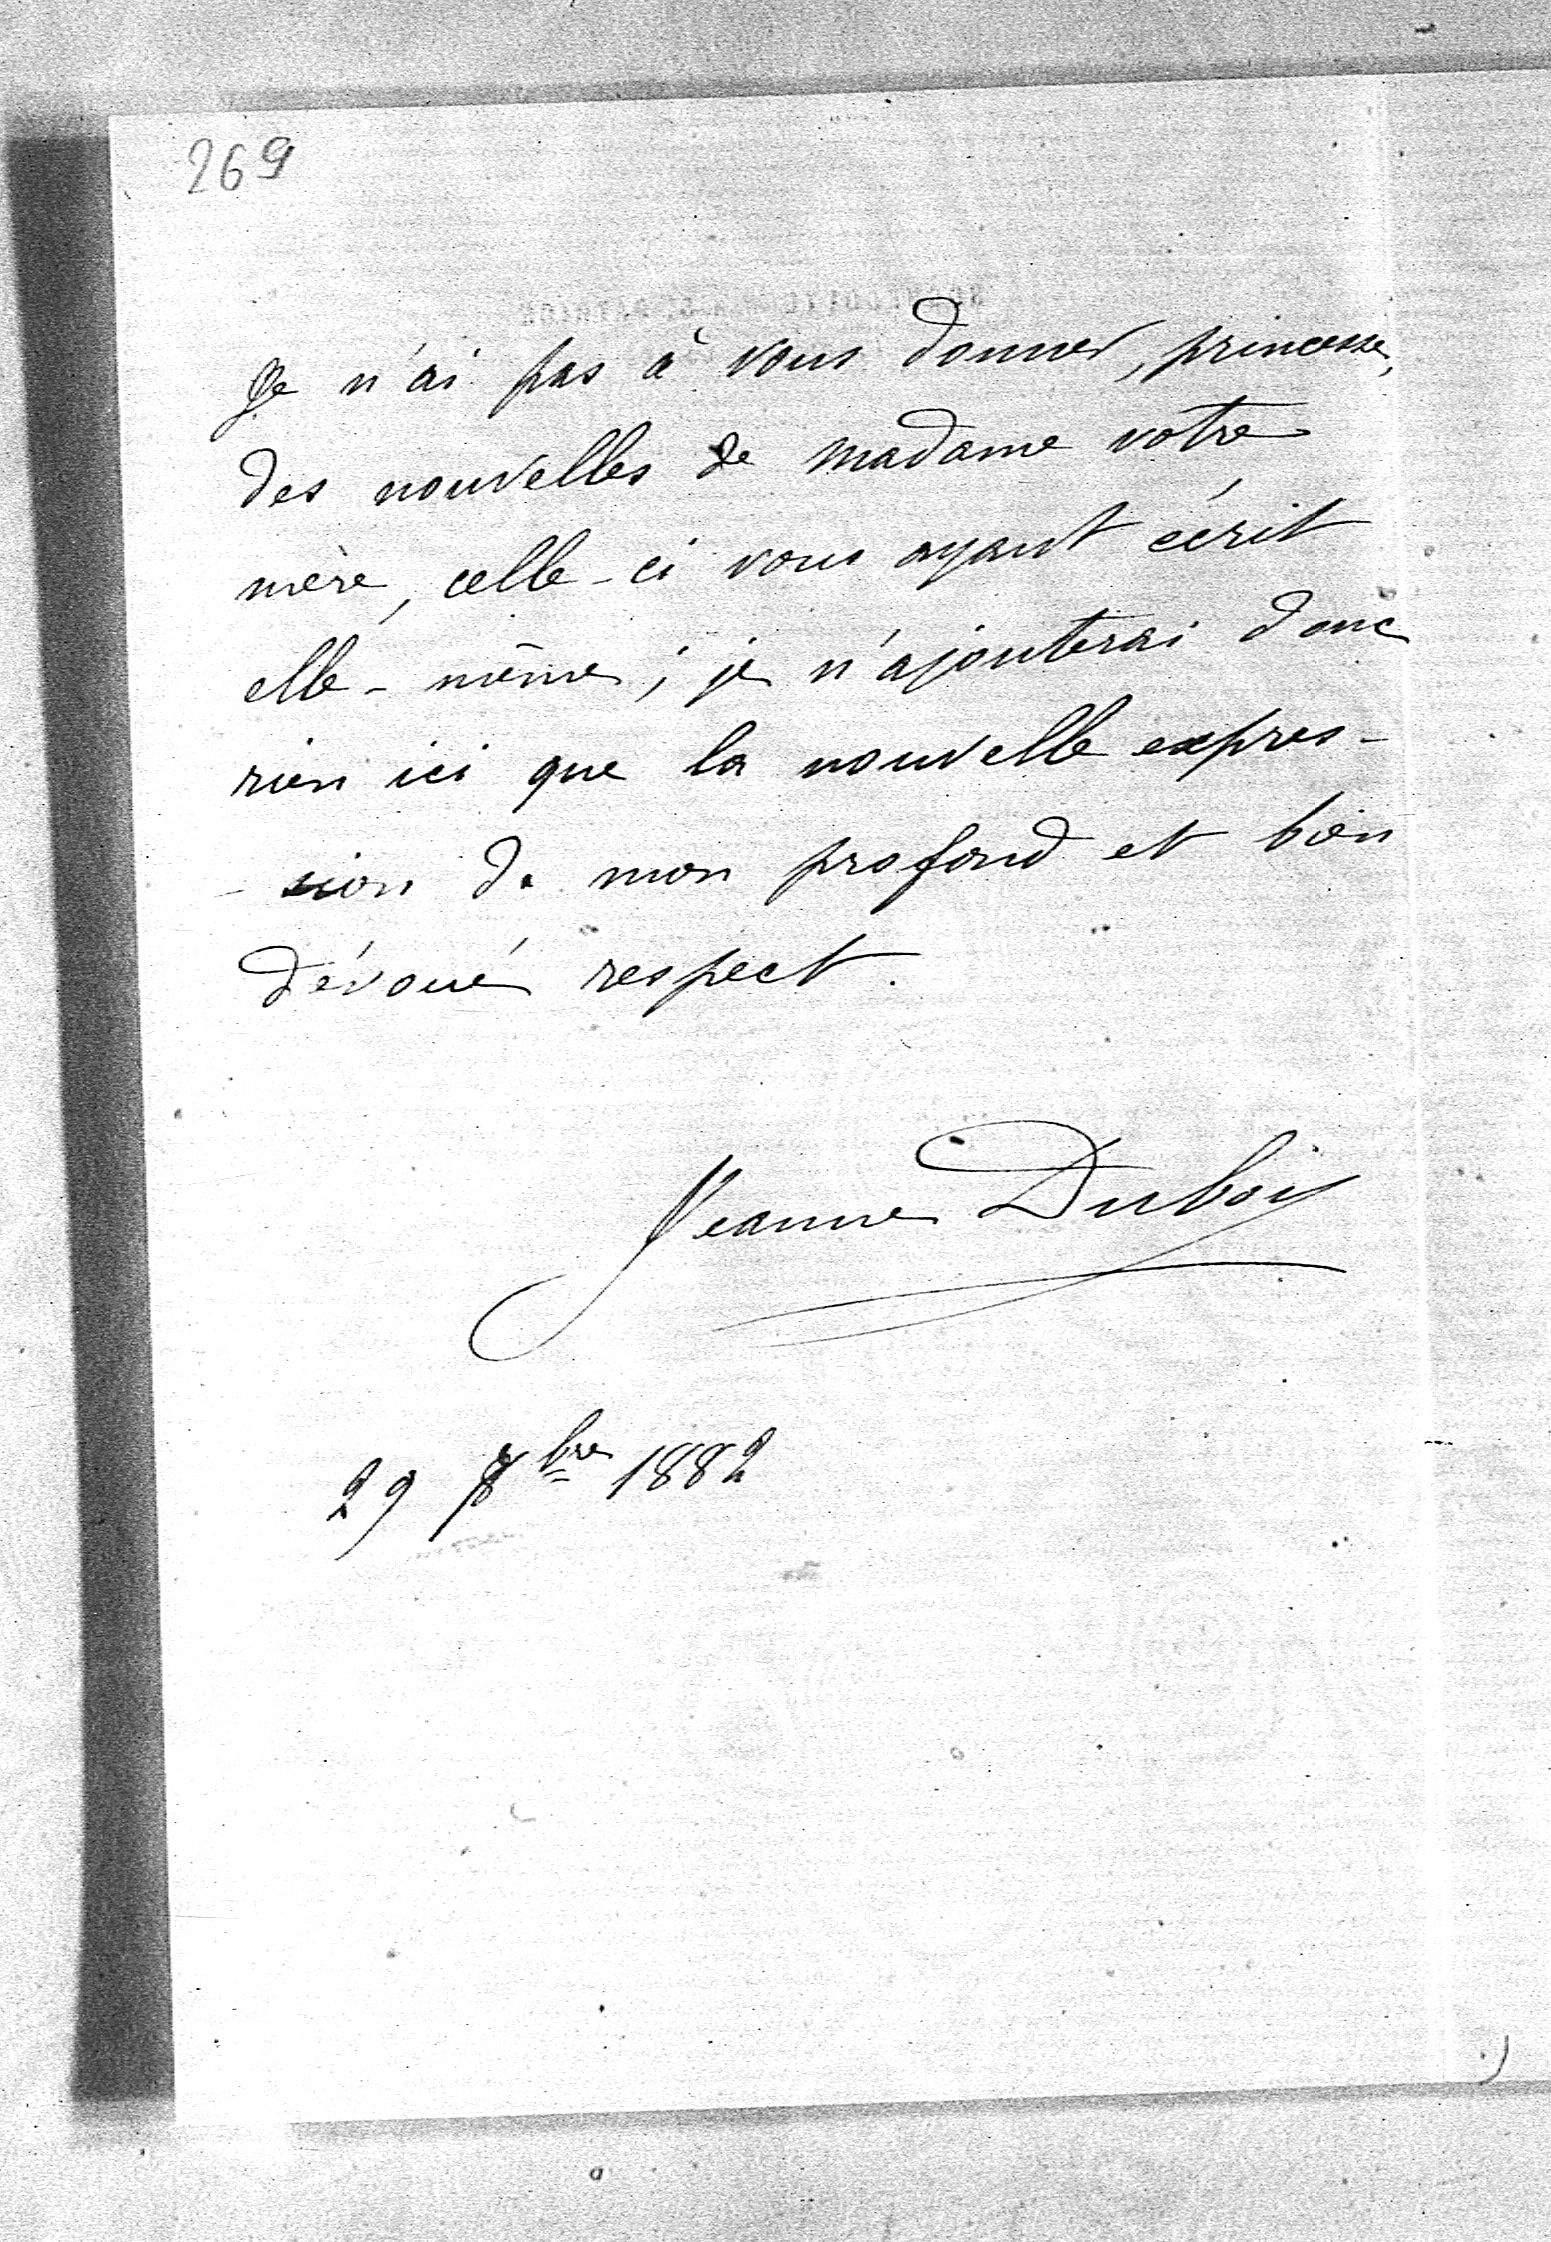 269
Je n'ai pas à vous donner, princesse,
des nouvelles de madame votre
mère, celle-ci vous ayant écrit
elle-même ; je n'ajouterai donc
rien ici que la nouvelle expres-
-sion de mon profond et bien
dévoué respect.
Jeanne Dubois
29 8bre 1882